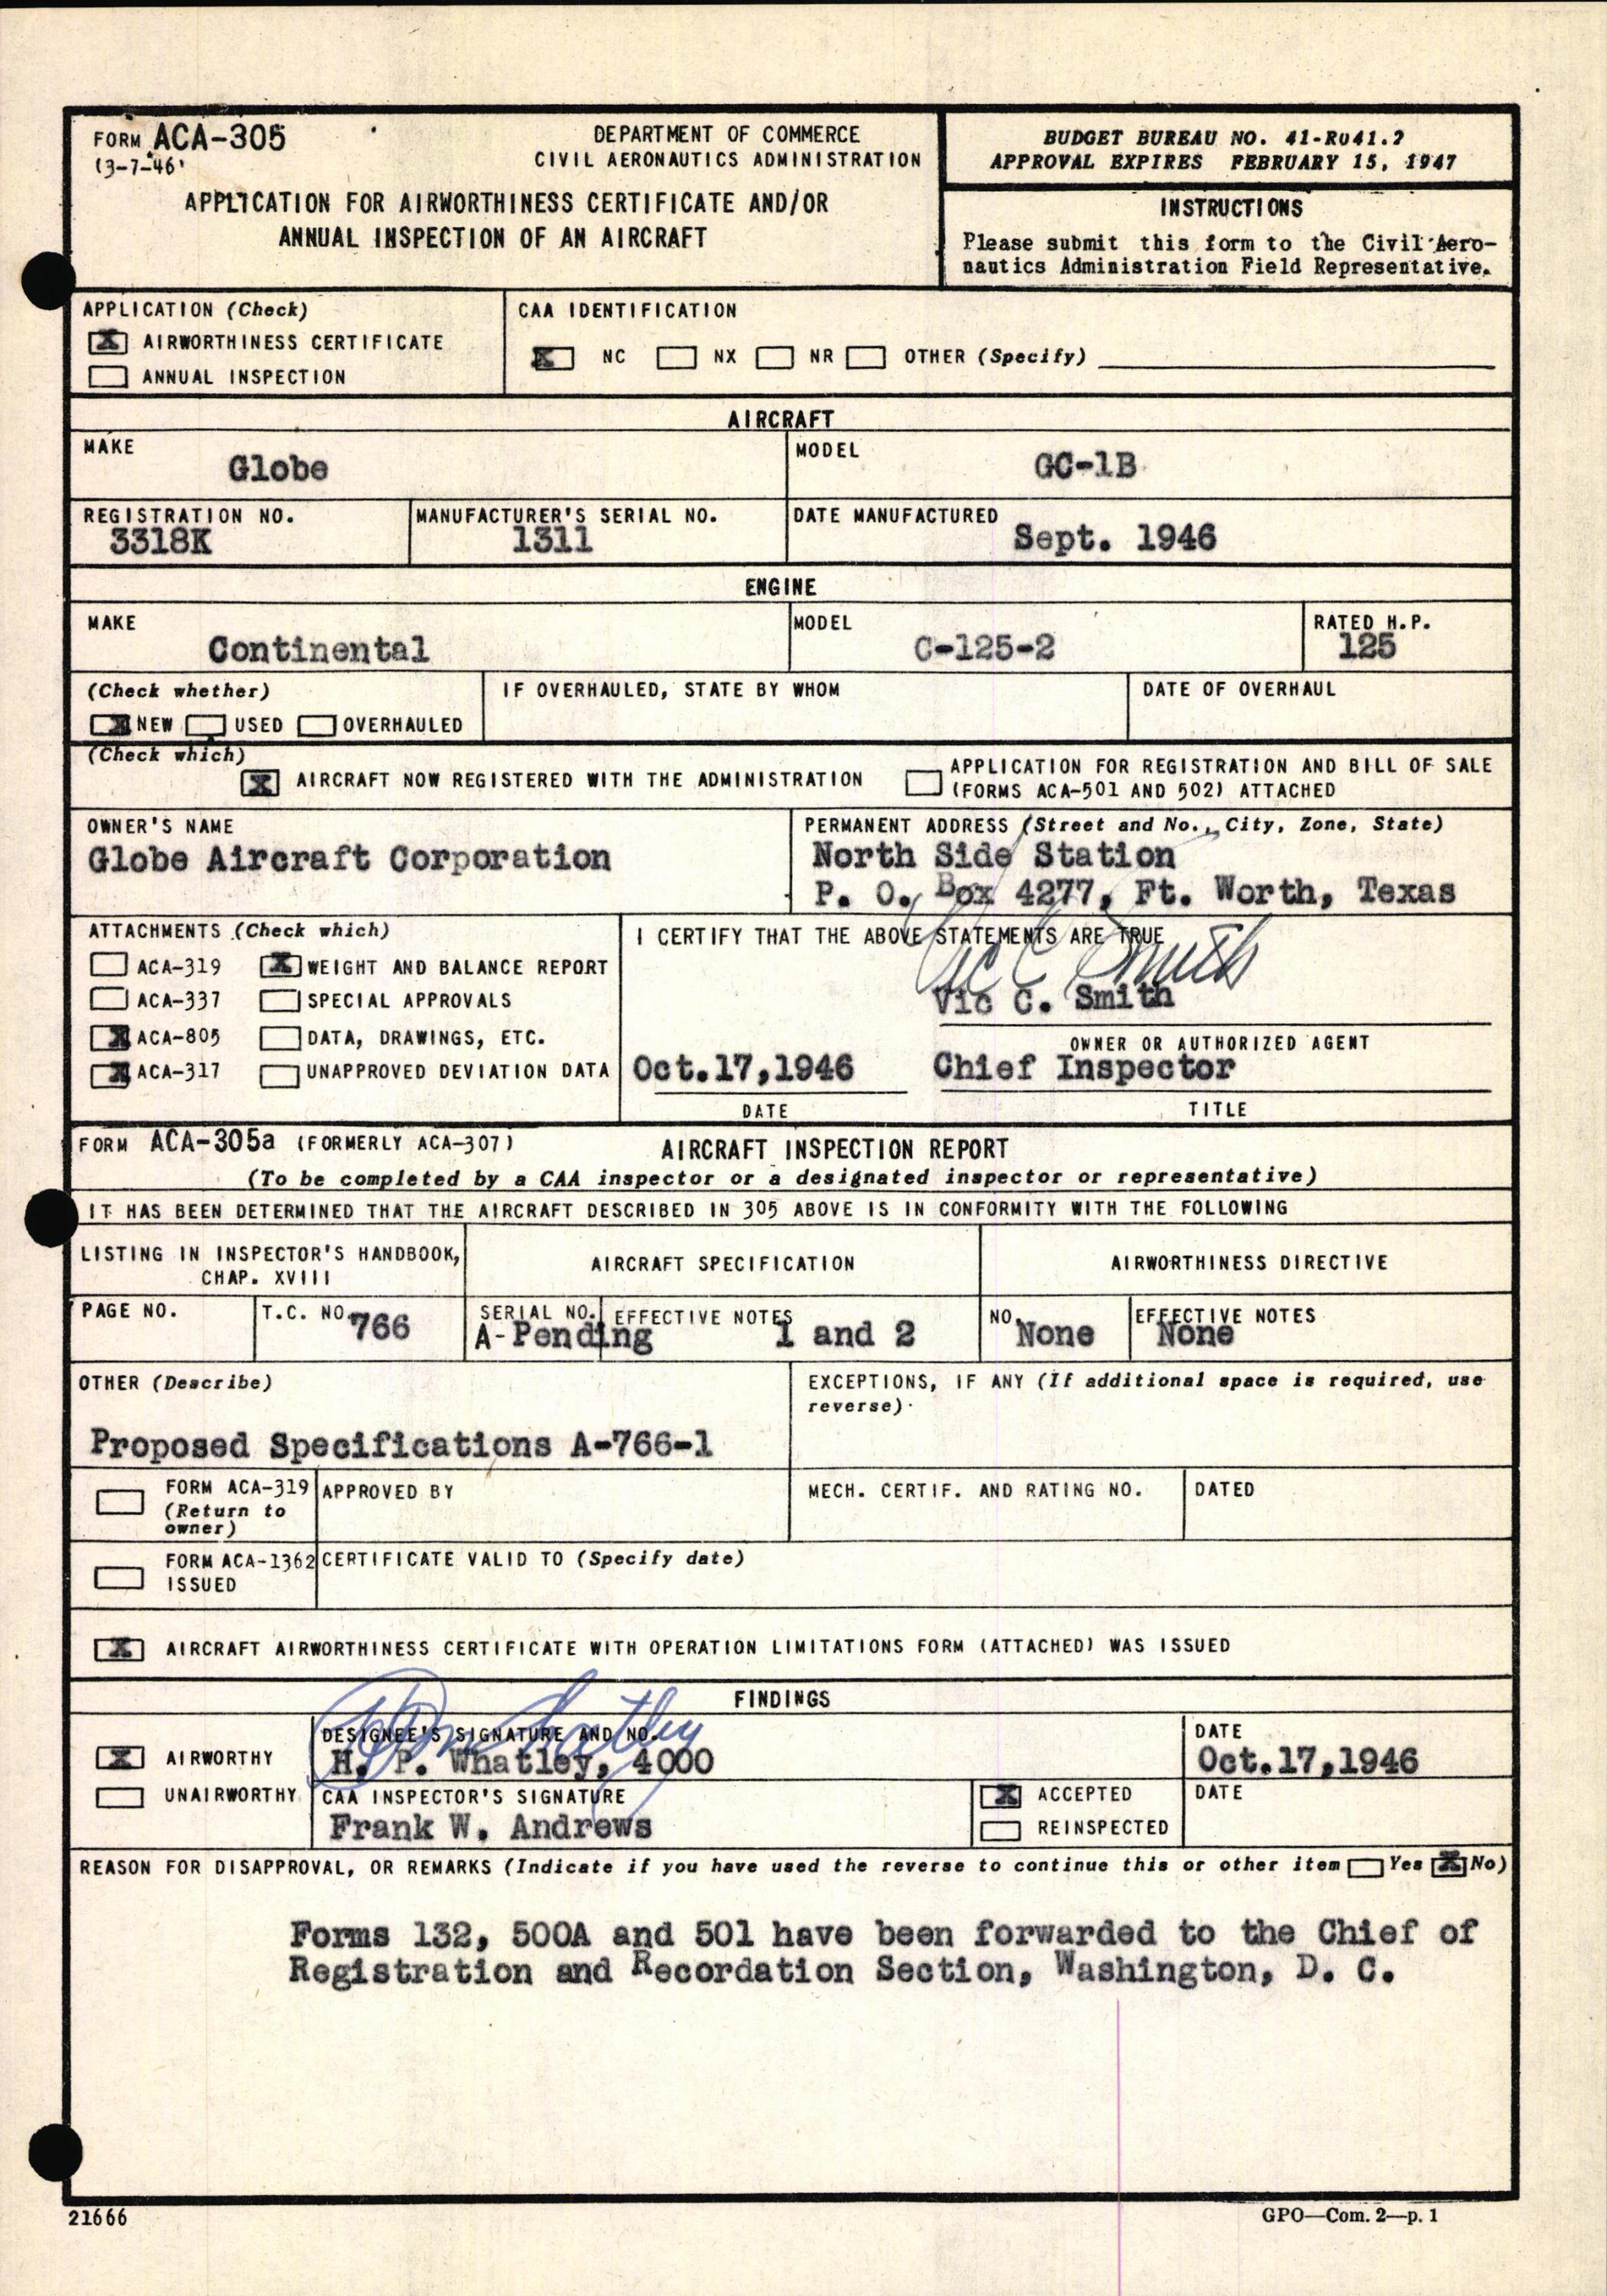 FORM ACA-305
(3-7-46)
DEPARTMENT OF COMMERCE
CIVIL AERONAUTICS ADMINISTRATION
APPLICATION FOR AIRWORTHINESS CERTIFICATE AND/OR
ANNUAL INSPECTION OF AN AIRCRAFT
BUDGET BUREAU NO. 41-R041.2
APPROVAL EXPIRES FEBRUARY 15, 1947
INSTRUCTIONS
Please submit this form to the Civil Aero-
nautics Administration Field Representative.
APPLICATION (Check)
X AIRWORTHINESS CERTIFICATE
ANNUAL INSPECTION
CAA IDENTIFICATION
X NC NX NR OTHER (Specify)
AIRCRAFT
MAKE
Globe
MODEL
GC-1B
REGISTRATION NO.
3318K
MANUFACTURER'S SERIAL NO.
1311
DATE MANUFACTURED
Sept. 1946
ENGINE
MAKE
Continental
MODEL
C-125-2
RATED H.P.
125
(Check whether)
X NEW USED OVERHAULED
IF OVERHAULED, STATE BY WHOM
DATE OF OVERHAUL
(Check which)
X AIRCRAFT NOW REGISTERED WITH THE ADMINISTRATION
APPLICATION FOR REGISTRATION AND BILL OF SALE
(FORMS ACA-501 AND 502) ATTACHED
OWNER'S NAME
Globe Aircraft Corporation
PERMANENT ADDRESS (Street and No., City, Zone, State)
North Side Station
P. O. Box 4277, Ft. Worth, Texas
ATTACHMENTS (Check which)
ACA-319 X WEIGHT AND BALANCE REPORT
ACA-337 SPECIAL APPROVALS
X ACA-805 DATA, DRAWINGS, ETC.
X ACA-317 UNAPPROVED DEVIATION DATA
I CERTIFY THAT THE ABOVE STATEMENTS ARE TRUE
Vic C Smith
Vic C. Smith
OWNER OR AUTHORIZED AGENT
Oct.17,1946 Chief Inspector
DATE TITLE
FORM ACA-305a (FORMERLY ACA-307) AIRCRAFT INSPECTION REPORT
(To be completed by a CAA inspector or a designated inspector or representative)
IT HAS BEEN DETERMINED THAT THE AIRCRAFT DESCRIBED IN 305 ABOVE IS IN CONFORMITY WITH THE FOLLOWING
LISTING IN INSPECTOR'S HANDBOOK,
CHAP. XVIII
AIRCRAFT SPECIFICATION
AIRWORTHINESS DIRECTIVE
PAGE NO.
T.C. NO.
766
SERIAL NO.
A-Pending
EFFECTIVE NOTES
1 and 2
NO.
None
EFFECTIVE NOTES
None
OTHER (Describe)
Proposed Specifications A-766-1
EXCEPTIONS, IF ANY (If additional space is required, use
reverse).
FORM ACA-319
(Return to
owner)
APPROVED BY
MECH. CERTIF. AND RATING NO.
DATED
FORM ACA-1362
ISSUED
CERTIFICATE VALID TO (Specify date)
X AIRCRAFT AIRWORTHINESS CERTIFICATE WITH OPERATION LIMITATIONS FORM (ATTACHED) WAS ISSUED
FINDINGS
X AIRWORTHY
UNAIRWORTHY
DESIGNEE'S SIGNATURE AND NO.
H. P. Whatley, 4000
DATE
Oct.17,1946
CAA INSPECTOR'S SIGNATURE
Frank W. Andrews
X ACCEPTED
REINSPECTED
DATE
REASON FOR DISAPPROVAL, OR REMARKS (Indicate if you have used the reverse to continue this or other item Yes X No)
Forms 132, 500A and 501 have been forwarded to the Chief of
Registration and Recordation Section, Washington, D. C.
21666
GPO—Com. 2—p. 1